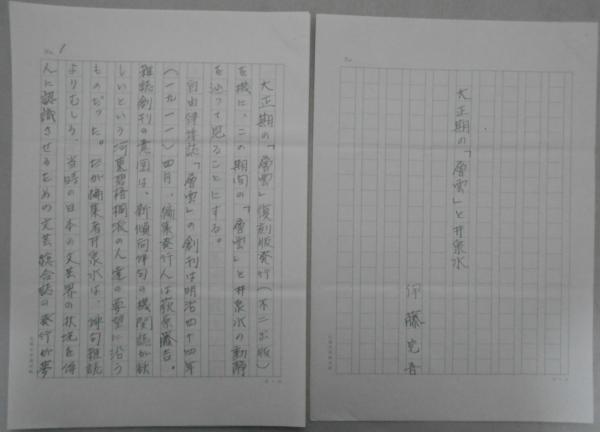 大正期の「層雲」と井泉水
伊藤完吾
No. 1
大正期の「層雲」復刻版発行(不二出版)
を機に、この期間の「層雲」と井泉水の動静
を辿って見ることにする。
自由律俳誌「層雲」の創刊は明治四十四年
(一九一一)四月、編集発行人は荻原藤吉。
雑誌創刊の意図は、新傾向俳句の機関誌が欲
しいという河東碧梧桐派の人達の要望に沿う
ものだった。だが編集者井泉水は、俳句雑誌
よりむしろ、当時の日本の文芸界の状況を俳
人に認識させるための文芸総合誌の発行が夢